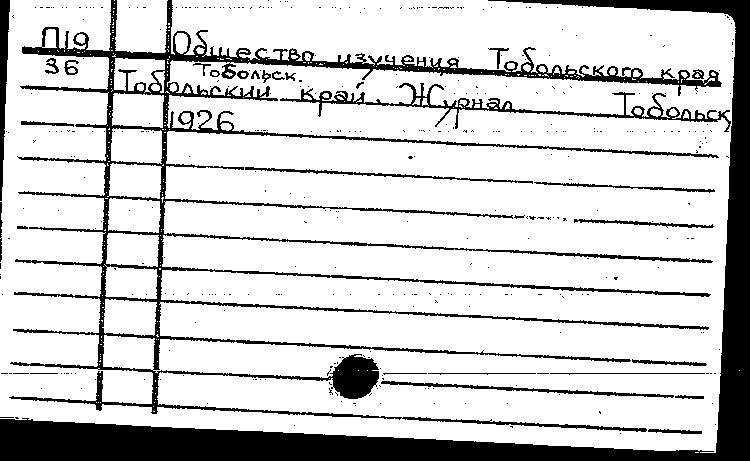 П19 Общество изучения Тобольского края
36 Тобольск.
Тобольский край. Журнал Тобольск
1926.